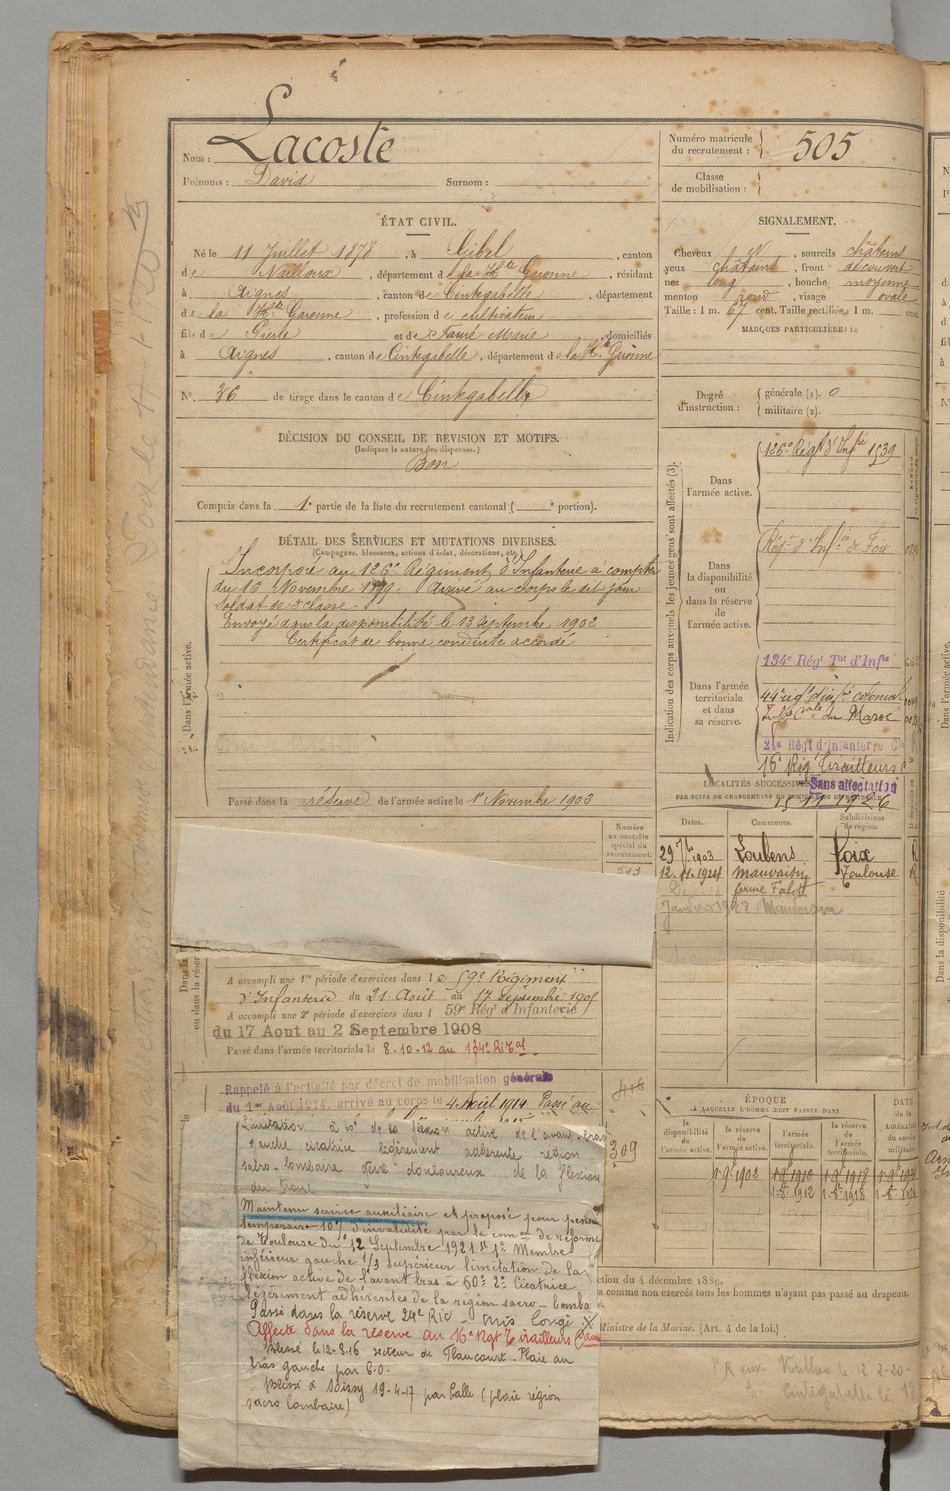 Nom : Lacoste
Prénoms : David Surnom :
Numéro matricule
du recrutement : 505
Classe
de mobilisation :
ÉTAT CIVIL.
Né le 11 Juillet 1878, à Gibel, canton
de Nailloux, département de la Hte Garonne, résidant
à Aignes, canton de Cintegabelle, département
de la Hte Garonne, profession de cultivateur
fils de Pierre et de Fauré Marie domiciliés
à Aignes, canton de Cintegabelle, département de la Hte Garonne
N° 36 de tirage dans le canton de Cintegabelle
SIGNALEMENT.
Cheveux sourcils châtains
yeux châtains, front découvert
nez long, bouche moyenne
menton rond, visage ovale
Taille : 1 m. 67 cent. Taille rectifiée : 1 m. cent.
MARQUES PARTICULIÈRES :
Degré
d'instruction :
générale (1). 0
militaire (2).
DÉCISION DU CONSEIL DE REVISION ET MOTIFS.
(Indiquer la nature des dispenses.)
Bon
Compris dans la 1e partie de la liste du recrutement cantonal ( e portion).
DÉTAIL DES SERVICES ET MUTATIONS DIVERSES.
(Campagnes, blessures, actions d'éclat, décorations, etc.)
Incorporé au 126e Régiment d'Infanterie à compter
du 16 Novembre 1899. Arrivé au corps le dit jour
soldat de 2e classe.
Envoyé dans la disponibilité le 13 Septembre 1902
Certificat de bonne conduite accordé
Dans l'armée active.
Passé dans la réserve de l'armée active le 1er Novembre 1903
Indication des corps auxquels les jeunes gens sont affectés (3).
Dans
l'armée active.
126e Régt d'Infie 1539
Dans
la disponibilité
ou
dans la réserve
de
l'armée active.
Régt d'Infie de Foix
Dans l'armée
territoriale
et dans
sa réserve.
134e Régt Tal d'Infie
44e régt d'infie colonial
Infie Cale du Maroc
24e Régt d'Infanterie Cle
16e Régt Tirailleurs
Sans affectation
LOCALITÉS SUCCESSIVES
PAR SUITE DE CHANGEMENTS DE DOMICILE
Dates. Communes. Subdivisions
de région.
29 7bre 1903 Loubens Foix R
12.11.1924 Mauvaisin Toulouse R
ferme
Numéro
au contrôle
spécial du
recrutement.
A accompli une 1re période d'exercices dans le 59e Régiment
d'Infanterie du 21 Août au 17 Septembre 1905
A accompli une 2e période d'exercices dans l 59e Régt d'Infanterie
du 17 Aout au 2 Septembre 1908
Passé dans l'armée territoriale le 8-10-12 au 134e
Rappelé à l'activité par décret de mobilisation générale
du 1er Août 1914, arrivé au corps le 4 Août 1914 Passé au
309
Limitation à 60° de la flexion active de l'avant-bras
gauche cicatrice légèrement adhérente région
sacro-lombaire gêne douloureux de la flexion
du tronc
Maintenu service auxiliaire et proposé pour pension
temporaire 10% d'invalidité par la com on de réforme
de Toulouse du 12 Septembre 1921 1° Membre
inférieur gauche 1/3 supérieur limitation de la
flexion active de l'avant bras à 60° 2° Cicatrice
légèrement adhérentes de la région sacro-lomba
Passé dans la réserve 24e RIC
Affecté dans la réserve au 16e Rgt Tirailleurs
Blessé le 12-8-16 secteur de Flaucourt. Plaie au
bras gauche par E.O.
Blessé à Soissy 19-4-17 par balle (plaie région
sacro lombaire)
ÉPOQUE
À LAQUELLE L'HOMME DOIT PASSER DANS
la
disponibilité
de l'armée
active.
la réserve
de
l'armée active.
l'armée
territoriale.
la réserve
de
l'armée
territoriale.
DATE
de la
du service
militaire
1.9bre 1902
ction du 4 décembre 1889.
ra comme non exercés tous les hommes n'ayant pas passé au drapeau.
Ministre de la Marine. (Art. 4 de la loi.)